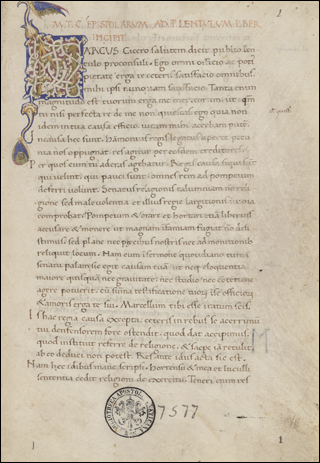 1
M. T. C. EPISTOLARUM AD P. LENTULUM LIBER
INCIPIT
MARCUS Cicero salutem dicit publio len
tulo proconsuli. Ego omni officio ac poti
us pietate erga te ceteris satisfacio omnibus.
mihi ipsi nunquam satisfacio. Tanta enim
magnitudo est tuorum erga me meritorum: ut qm
tu nisi perfecta re de me non
idem in tua causa efficio. vitam mihi acerbam putem.
causa hec sunt. Hammonius regis legatus aperte pecu
nia nos oppugnat. res agitur per eosdem creditores
Per quos cum tu aderas agebatur. Regis causa siqui sunt
qui velint. qui pauci sunt: omnes rem ad pompeium
deferri volunt. Senatus religionis calumniam non reli
gione sed malevolentia et illius regie largitionis invidia
comprobat. Pompeium & hortari et orare & iam liberius
accusare & monere ut magnam infamiam fugiat non
sed plane nec precibus nostris nec admonitionibus
reliquit locum. Nam cum in sermone quotidiano tum in
senatu palam sic egit causam tuam ut neque eloquentia
maiore quisquam nec gravitate: nec studio nec contentione
agere potuerit. cum summa testificatione tuorum in se officiorum
& amoris erga te sui. Marcellinum tibi esse iratum scis.
Is hac regia causa excepta. ceteris in rebus se acerrimum
tui defensorem fore ostendit. quod dat accipimus.
quod instituit referre de religione. & sepe iam retulit.
ab eo deduci non potest. Res ante idus acta sic est.
Nam hec idibus mane scripsi. Hortensii & mea et luculli
sententia cedit religioni de exercitu. Teneri enim res
BIBLIOTHECA APOSTOL. VATICANA
7577
1